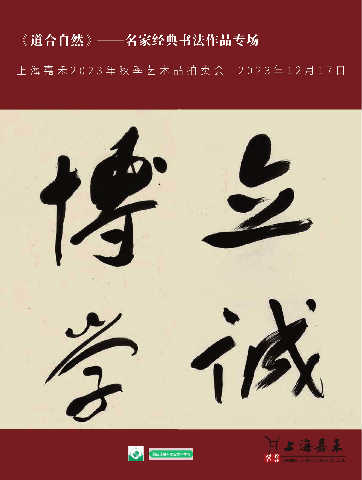 《道合自然》——名家经典书法作品专场
上海嘉禾2023年秋季艺术品拍卖会 2023年12月17日
立诚
博学
上海嘉禾